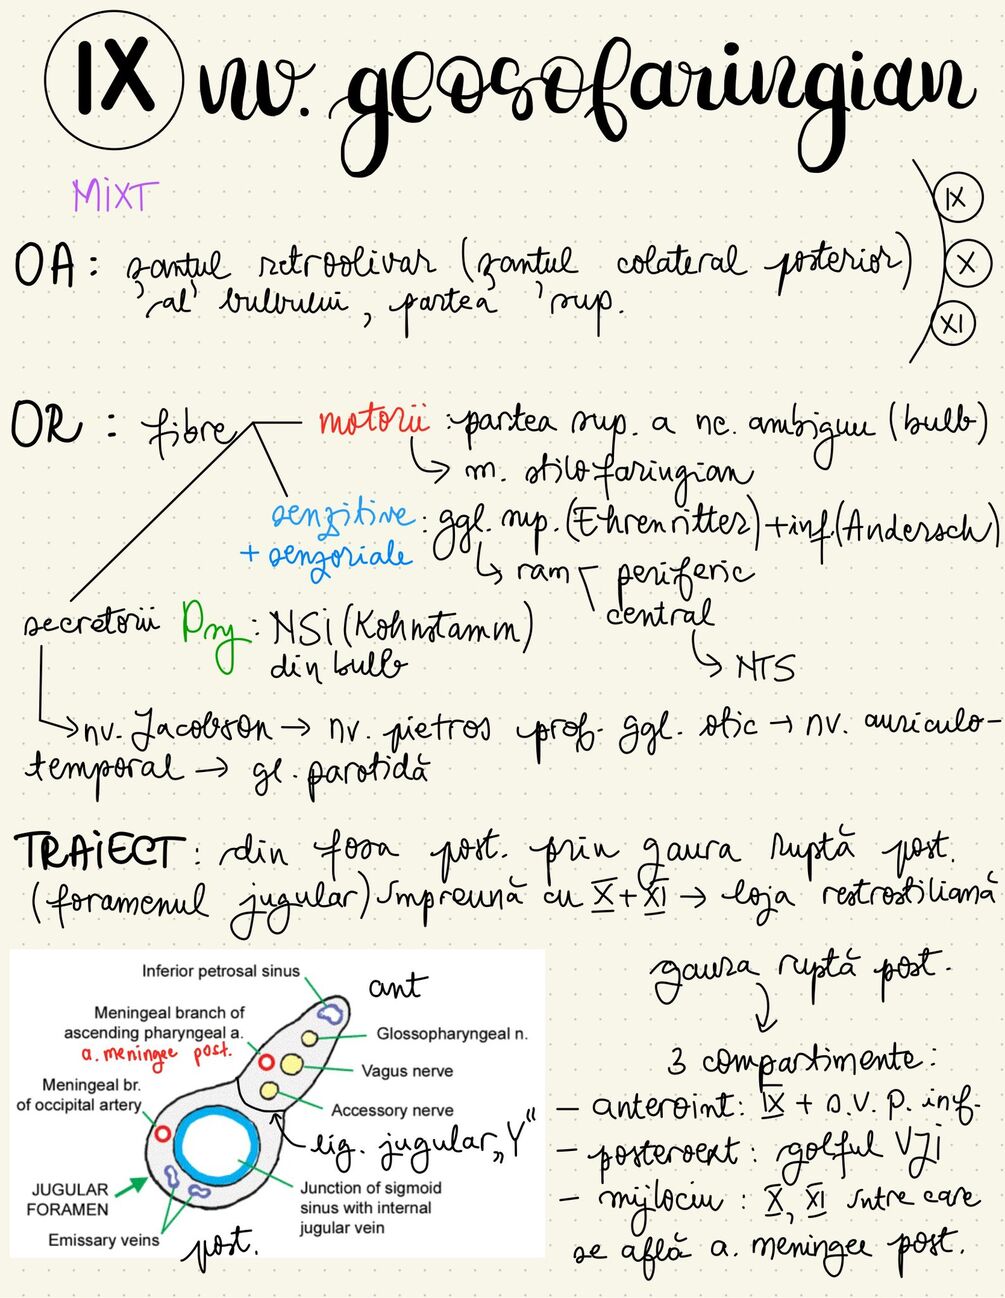 IX nv. glosofaringian
MIXT
IX
X
XI
OA : șanțul retroolivar (șanțul colateral posterior)
al bulbului, partea sup.
OR : fibre motorii : partea sup. a nc. ambiguu (bulb)
→ m. stilofaringian
senzitive : ggl. sup. (Ehrenritter) + inf. (Andersch)
+ senzoriale → ram periferic
central
→ NTS
secretorii Psy : NSi (Kohnstamm)
din bulb
→ nv. Jacobson → nv. pietros prof. ggl. otic → nv. auriculo-
temporal → gl. parotidă
TRAiECT : din fosa post. prin gaura ruptă post.
(foramenul jugular) împreună cu X + XI → loja restrostiliană
Inferior petrosal sinus
ant
Meningeal branch of
ascending pharyngeal a.
a. meningee post.
Glossopharyngeal n.
Vagus nerve
Meningeal br.
of occipital artery
Accessory nerve
lig. jugular „Y“
JUGULAR
FORAMEN
Junction of sigmoid
sinus with internal
jugular vein
Emissary veins
post.
gaura ruptă post.
↓
3 compartimente :
– anteroint: IX + s.v. p. inf.
– posteroext : golful VJi
– mijlociu : X, XI între care
se află a. meningee post.